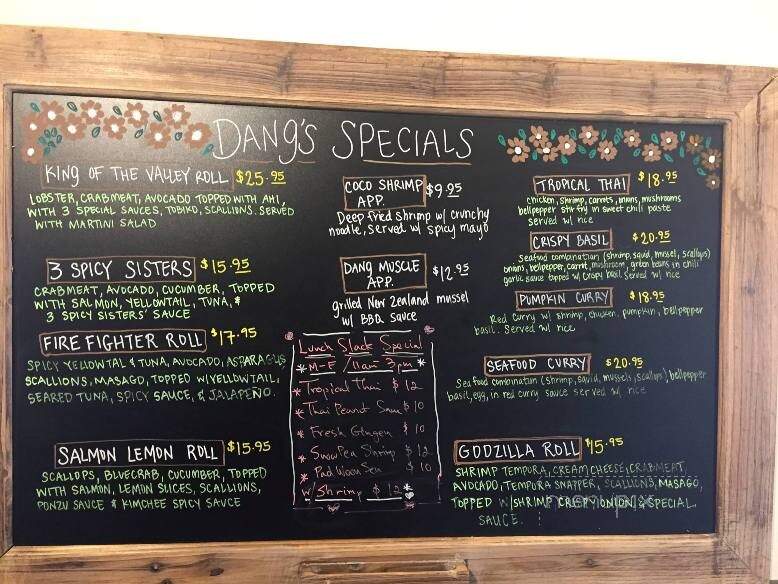 DANG'S SPECIALS
KING OF THE VALLEY ROLL $25.95
LOBSTER, CRABMEAT, AVOCADO TOPPED WITH AHI,
WITH 3 SPECIAL SAUCES, TOBIKO, SCALLIONS. SERVED
WITH MARTINI SALAD
3 SPICY SISTERS $15.95
CRABMEAT, AVOCADO, CUCUMBER, TOPPED
WITH SALMON, YELLOWTAIL, TUNA, &
3 SPICY SISTERS' SAUCE
FIRE FIGHTER ROLL $17.95
SPICY YELLOWTAIL & TUNA, AVOCADO, ASPARAGUS
SCALLIONS, MASAGO, TOPPED W/YELLOWTAIL,
SEARED TUNA, SPICY SAUCE, & JALAPEÑO.
SALMON LEMON ROLL $15.95
SCALLOPS, BLUECRAB, CUCUMBER, TOPPED
WITH SALMON, LEMON SLICES, SCALLIONS,
PONZU SAUCE & KIMCHEE SPICY SAUCE
COCO SHRIMP APP. $9.95
Deep fried shrimp w/ crunchy
noodle, Served w/ spicy mayo
DANG MUSCLE APP. $12.95
grilled New Zealand mussel
w/ BBQ sauce
Lunch Special
* M-F / 11am-3pm *
* Tropical Thai $12
* Thai Peanut Sauce $10
* Fresh Ginger $10
* Snow Pea Shrimp $12
* Pad Woon Sen $10
w/ Shrimp $12 *
TROPICAL THAI $18.95
chicken, shrimp, carrots, onions, mushrooms
bellpepper stir fry in sweet chili paste
served w/ rice
CRISPY BASIL $20.95
Seafood combination (shrimp, squid, mussel, scallops)
onions, bellpepper, carrot, mushroom, green beans in chili
garlic sauce topped w/ crispy basil. Served w/ rice
PUMPKIN CURRY $18.95
Red curry w/ shrimp, chicken, pumpkin, bellpepper
basil. Served w/ rice
SEAFOOD CURRY $20.95
Seafood combination (shrimp, squid, mussels, scallops), bellpepper
basil, egg, in red curry sauce served w/ rice
GODZILLA ROLL $15.95
SHRIMP TEMPURA, CREAM CHEESE, CRABMEAT
AVOCADO, TEMPURA SNAPPER, SCALLIONS, MASAGO,
TOPPED W/ SHRIMP CRISPY ONION & SPECIAL
SAUCE.